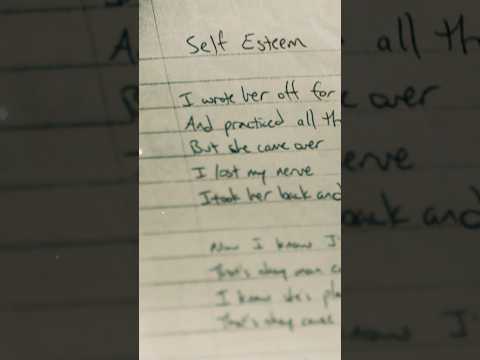 Self Esteem
I wrote her off for
And practiced all th
But she came over
I lost my nerve
I took her back and
Now I know I'
That's okay man c
I know she's pla
That's okay cause